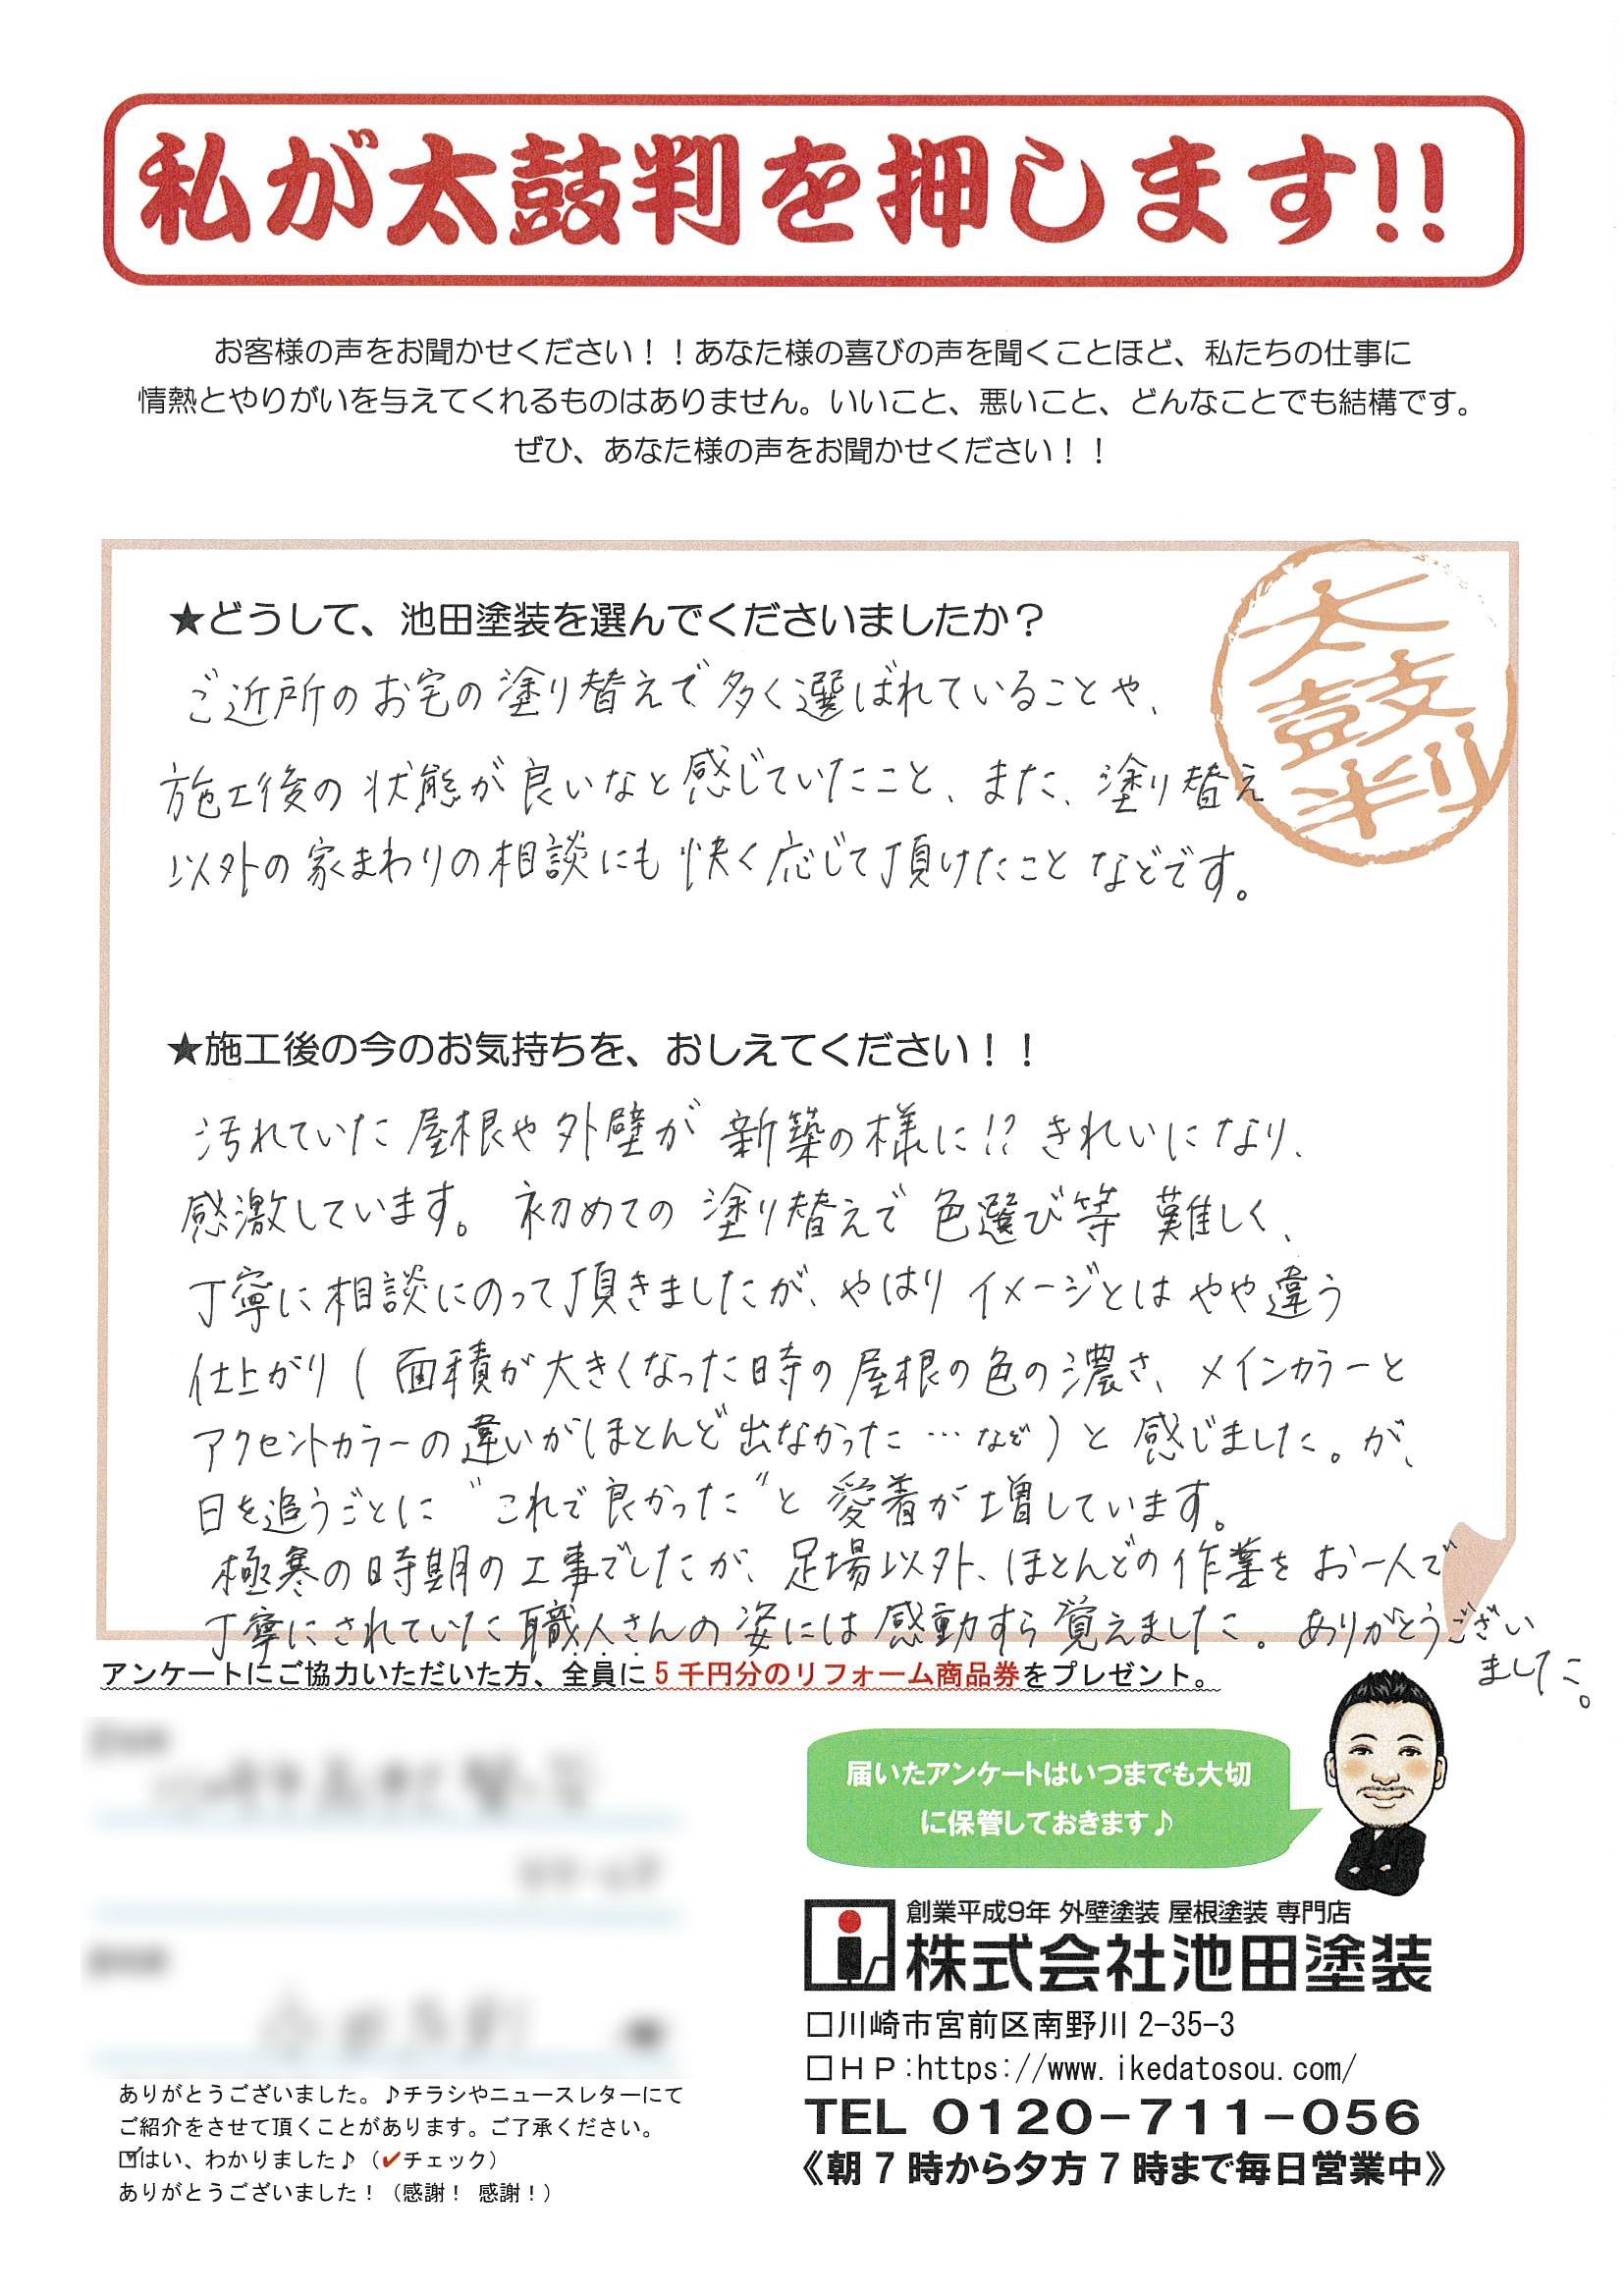 私が太鼓判を押します!!
お客様の声をお聞かせください！！あなた様の喜びの声を聞くことほど、私たちの仕事に
情熱とやりがいを与えてくれるものはありません。いいこと、悪いこと、どんなことでも結構です。
ぜひ、あなた様の声をお聞かせください！！
太鼓判
★どうして、池田塗装を選んでくださいましたか？
ご近所のお宅の塗り替えで多く選ばれていることや、
施工後の状態が良いなと感じていたこと、また、塗り替え
以外の家まわりの相談にも快く応じて頂けたことなどです。
★施工後の今のお気持ちを、おしえてください！！
汚れていた屋根や外壁が新築の様に!?きれいになり、
感激しています。初めての塗り替えで色選び等難しく、
丁寧に相談にのって頂きましたが、やはりイメージとはやや違う
仕上がり(面積が大きくなった時の屋根の色の濃さ、メインカラーと
アクセントカラーの違いがほとんど出なかった…など)と感じました。が、
日を追うごとに"これで良かった"と愛着が増しています。
極寒の時期の工事でしたが、足場以外、ほとんどの作業をお一人で
丁寧にされていた職人さんの姿には感動すら覚えました。ありがとうござい
ました。
アンケートにご協力いただいた方、全員に5千円分のリフォーム商品券をプレゼント。
届いたアンケートはいつまでも大切
に保管しておきます♪
創業平成9年 外壁塗装 屋根塗装 専門店
株式会社池田塗装
□川崎市宮前区南野川2-35-3
□HP:https://www.ikedatosou.com/
TEL 0120-711-056
《朝7時から夕方7時まで毎日営業中》
ありがとうございました。♪チラシやニュースレターにて
ご紹介をさせて頂くことがあります。ご了承ください。
☑はい、わかりました♪（✔チェック）
ありがとうございました！（感謝！ 感謝！）